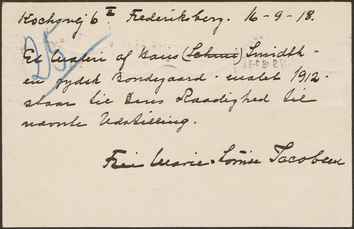 Kochsvej 6 I Frederiksberg. 16-9-18.
Et Maleri af Hans (Schmi) Smidth -
en jydsk Bondegaard - malet 1912 -
staar til Deres Raadighed til
nævnte Udstilling.
Frk Marie-Louise Jacobsen
25